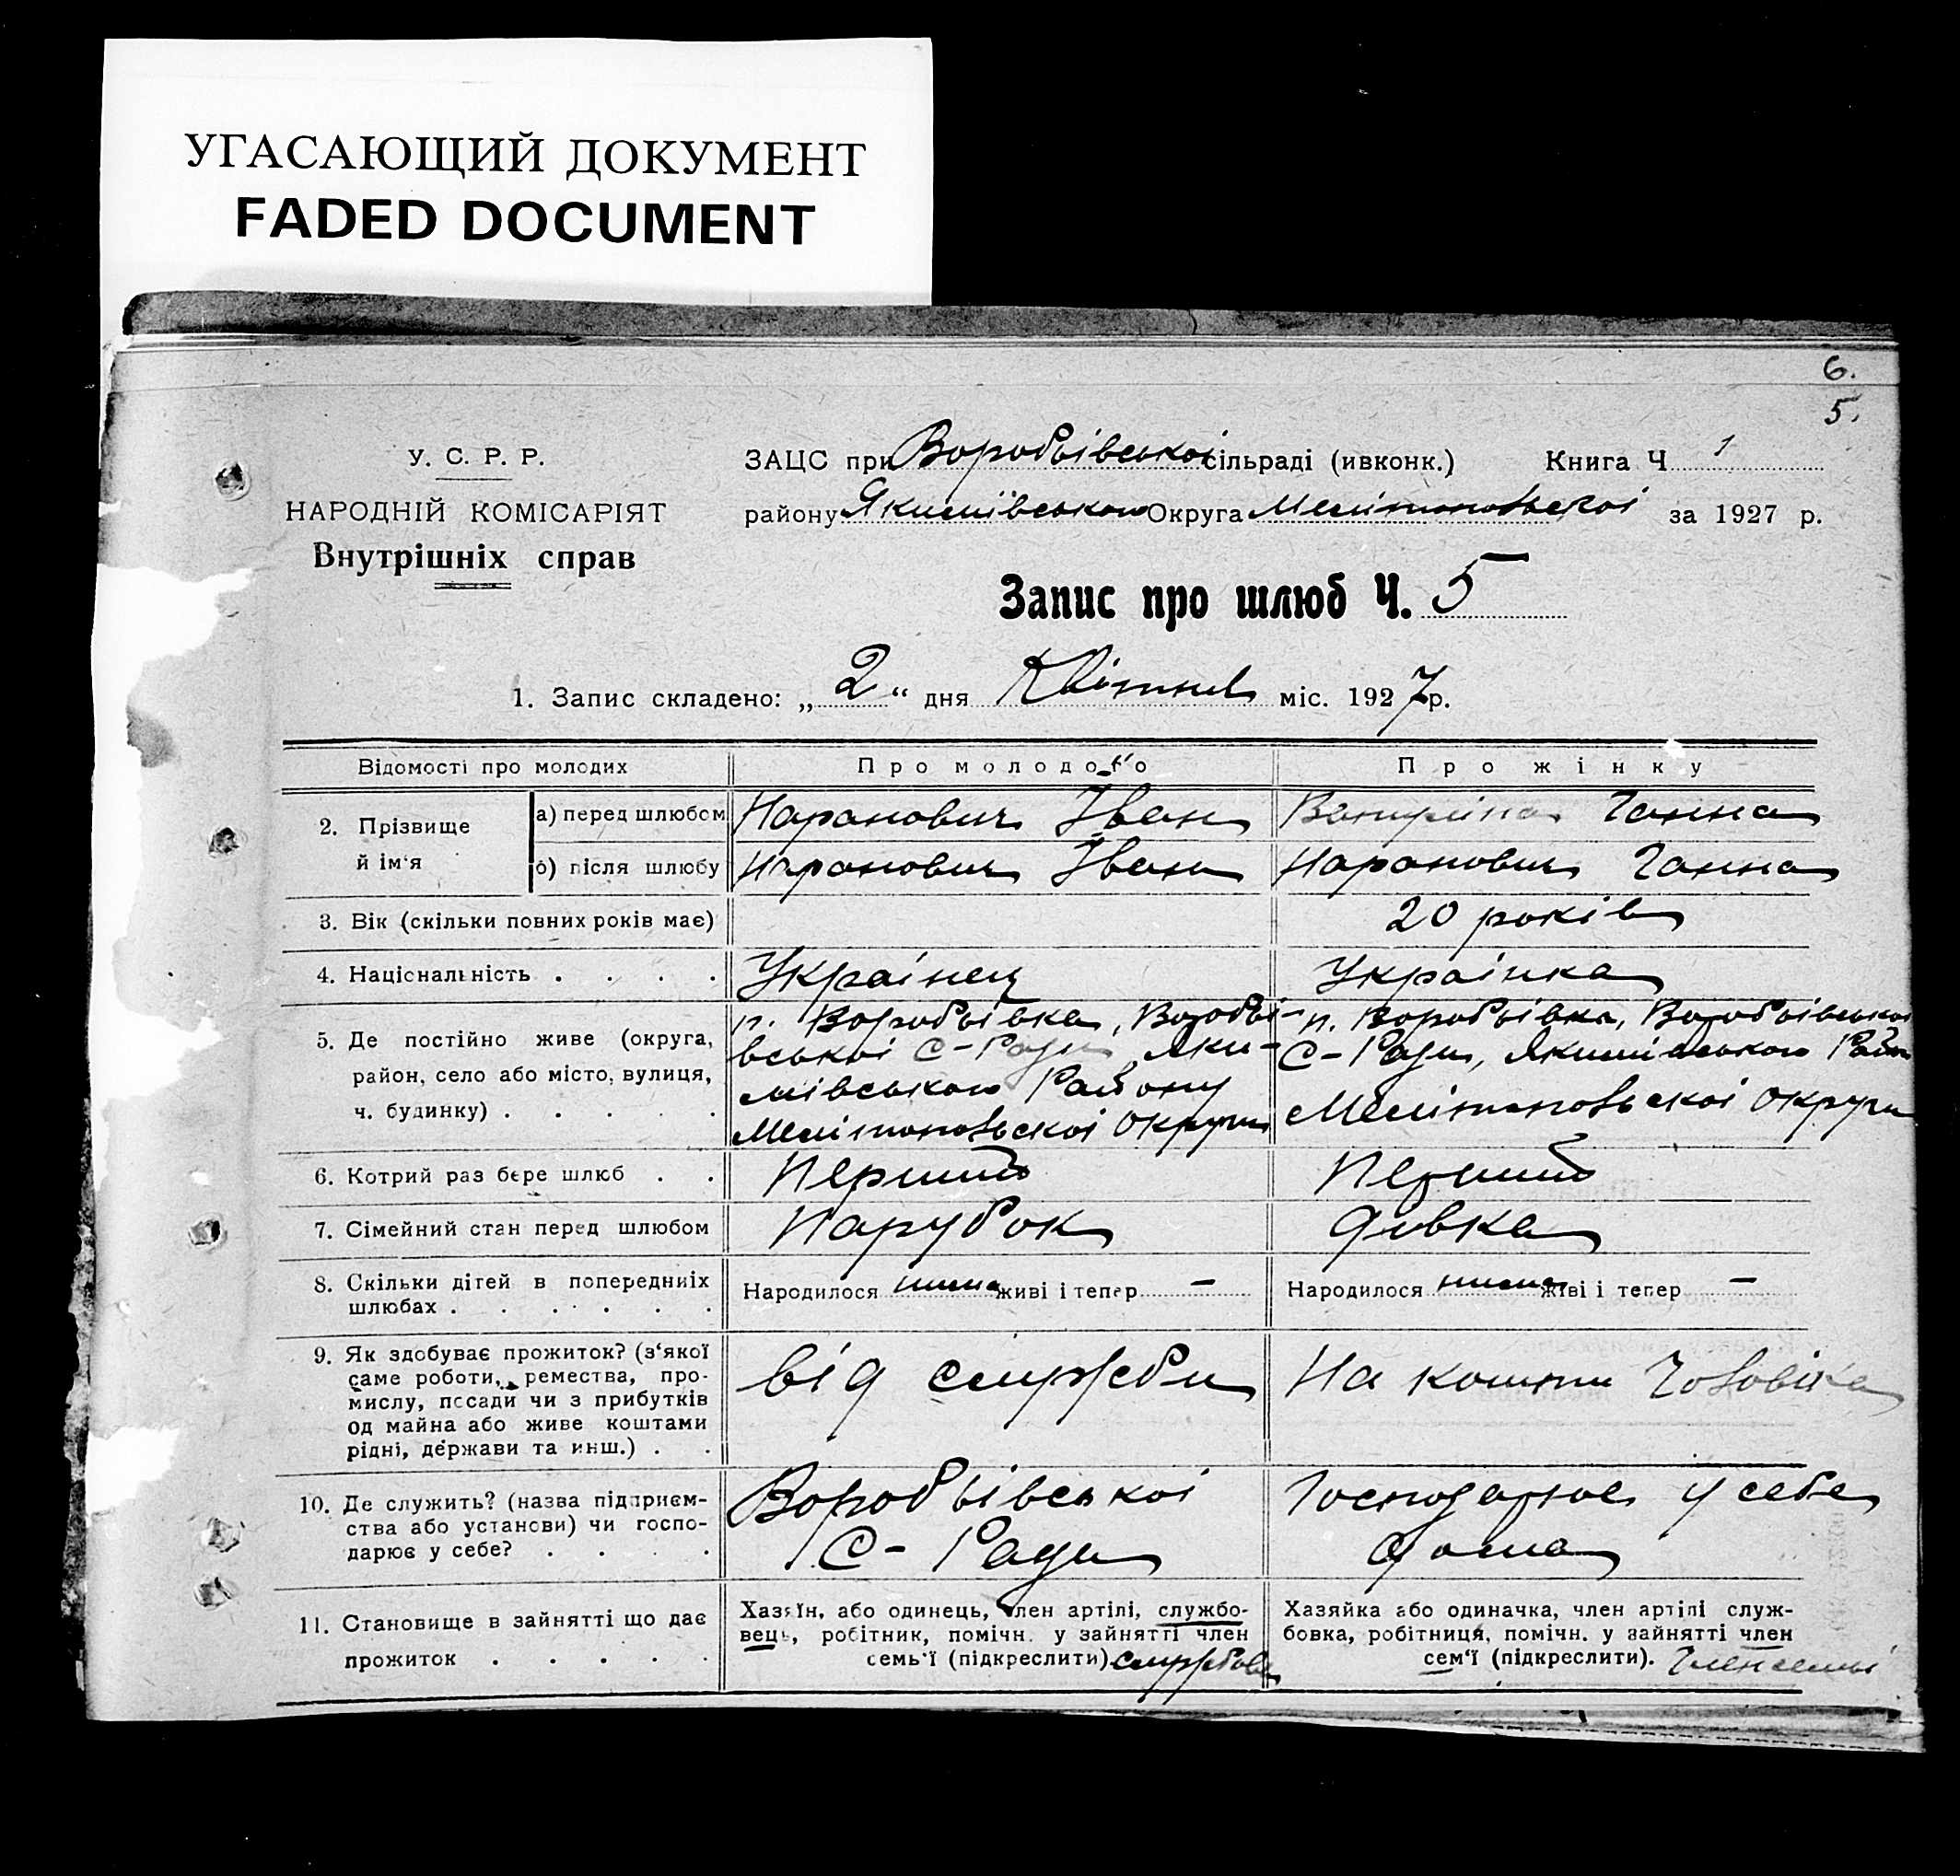 УГАСАЮЩИЙ ДОКУМЕНТ
FADED DOCUMENT
6.
5.
У. С. Р. Р.
НАРОДНІЙ КОМІСАРІЯТ
Внутрішніх справ
ЗАЦС при Воробьівськоі сільраді (ивконк.) Книга Ч 1
району Якимівського Округа Мелітопольськоі за 1927 р.
Запис про шлюб Ч. 5
1. Запис складено: „ 2 “ дня Квітня міс. 1927 р.
Відомості про молодих
Про молодого
Про жінку
2. Прізвище й ім‘я
а) перед шлюбом
Наранович Іван
Ганна
б) після шлюбу
Наранович Іван
Наранович Ганна
3. Вік (скільки повних років має)
20 років
4. Національність . . . .
Украінец
Украінка
5. Де постійно живе (округа,
район, село або місто, вулиця,
ч. будинку) . . . . .
п. Воробьівка, Воробьі-
вськоі С-Ради, Яки-
мівського Району
Мелітопольскоі Округи
п. Воробьівка, Воробьівськоі
С-Ради, Якимівського Району
Мелітопольскоі Округи
6. Котрий раз бере шлюб . .
Перший
Перший
7. Сімейний стан перед шлюбом
Парубок
Дівка
8. Скільки дітей в попередниіх
шлюбах . . . . . .
Народилося нима живі і тепер –
Народилося нима живі і тепер –
9. Як здобуває прожиток? (з‘якої
саме роботи, ремества, про-
мислу, посади чи з прибутків
од майна або живе коштами
рідні, держави та инш.) . .
від служби
На кошти Чоловіка
10. Де служить? (назва підприєм-
ства або установи) чи госпо-
дарює у себе? . . . .
Воробьівськоі
С-Ради
Господарює у себе
дома
11. Становище в зайнятті що дає
прожиток . . . . .
Хазяїн, або одинець, член артілі, службо-
вець, робітник, помічн. у зайнятті член
семь‘ї (підкреслити) службовець
Хазяйка або одиначка, член артілі служ-
бовка, робітниця, помічн. у зайнятті член
сем‘ї (підкреслити). Член семьі